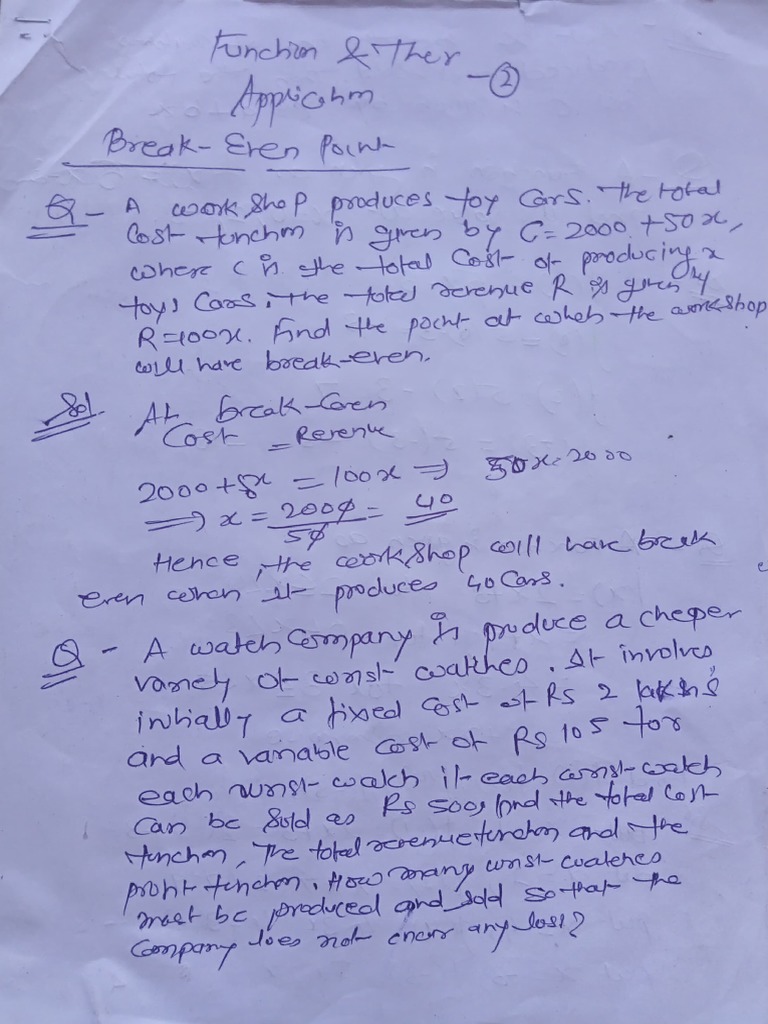 Function & Ther
Application
-②
Break-Even Point
Q - A work shop produces toy Cars. The total
Cost function is given by C=2000+50x,
where C is the total Cost of producing x
toys Cars. The total revenue R is given by
R=100x. Find the point at which the workshop
will have break-even.
Sol. At break-even
Cost = Revenue
2000+5x = 100x ⇒ 50x=2000
⇒ x = 2000/50 = 40
Hence, the workshop will have break
even when it produces 40 Cars.
Q - A watch Company is produce a cheper
variety of wrist watches. It involves
initially a fixed cost of Rs 2 lakhs
and a variable cost of Rs 105 for
each wrist-watch if each wrist-watch
can be sold as Rs 500, find the total cost
function, The total revenue function and the
profit function. How many wrist watches
must be produced and sold so that the
Company does not incur any loss?